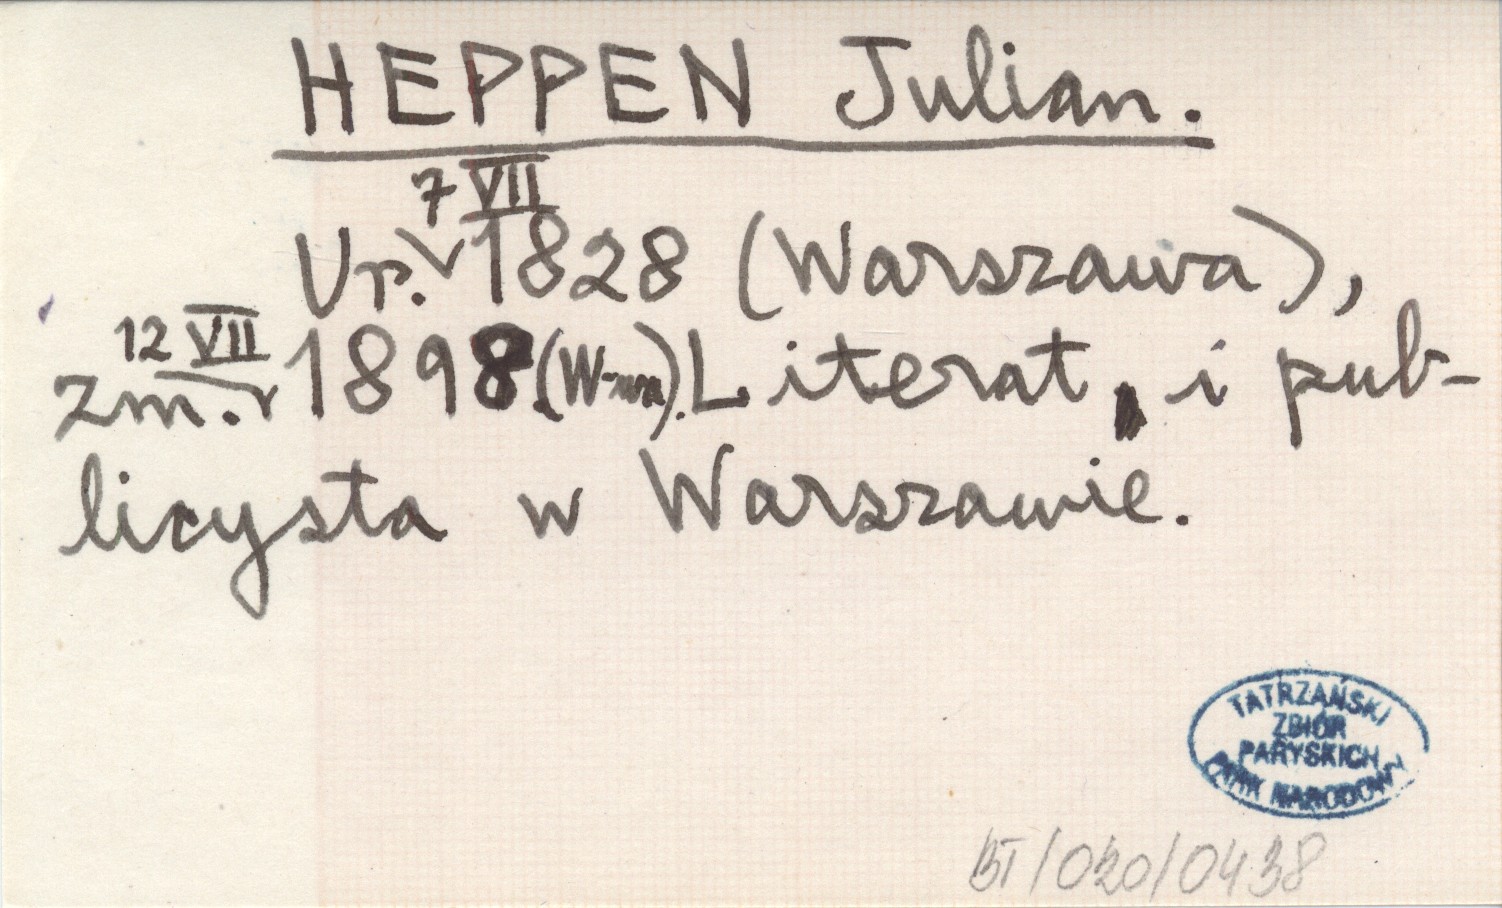 HEPPEN Julian.
7 VII
Ur. 1828 (Warszawa),
12 VII
zm. 1898 (W-wa). Literat i pub-
licysta w Warszawie.
TATRZAŃSKI
ZBIÓR
PARYSKICH
PARK NARODOWY
BT/020/0438